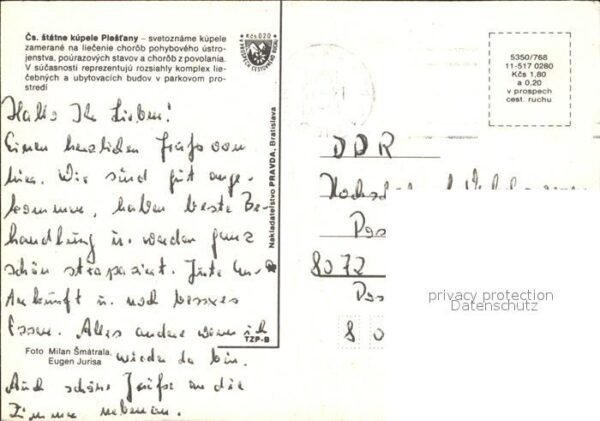 Čs. štátne kúpele Piešťany – svetoznáme kúpele
zamerané na liečenie chorôb pohybového ústro-
jenstva, poúrazových stavov a chorôb z povolania.
V súčasnosti reprezentujú rozsiahly komplex lie-
čebných a ubytovacích budov v parkovom pro-
stredí
Kčs 0,20
Hallo Ihr Lieben!
Einen herzlichen Gruß von
hier. Wir sind gut ange-
kommen, haben beste Be-
handlung u. werden ganz
schön strapaziert. Gute Un-
terkunft u. noch besseres
Essen. Alles andere wenn ich
wieder da bin.
Auch schöne Grüße an die
Zimmer nebenan.
Foto Milan Šmátrala,
Eugen Jurisa
Nakladateľstvo PRAVDA, Bratislava
TZP-B
5350/768
11-517 0280
Kčs 1,80
a 0.20
v prospech
cest. ruchu
DDR
8072
8 0
privacy protection
Datenschutz